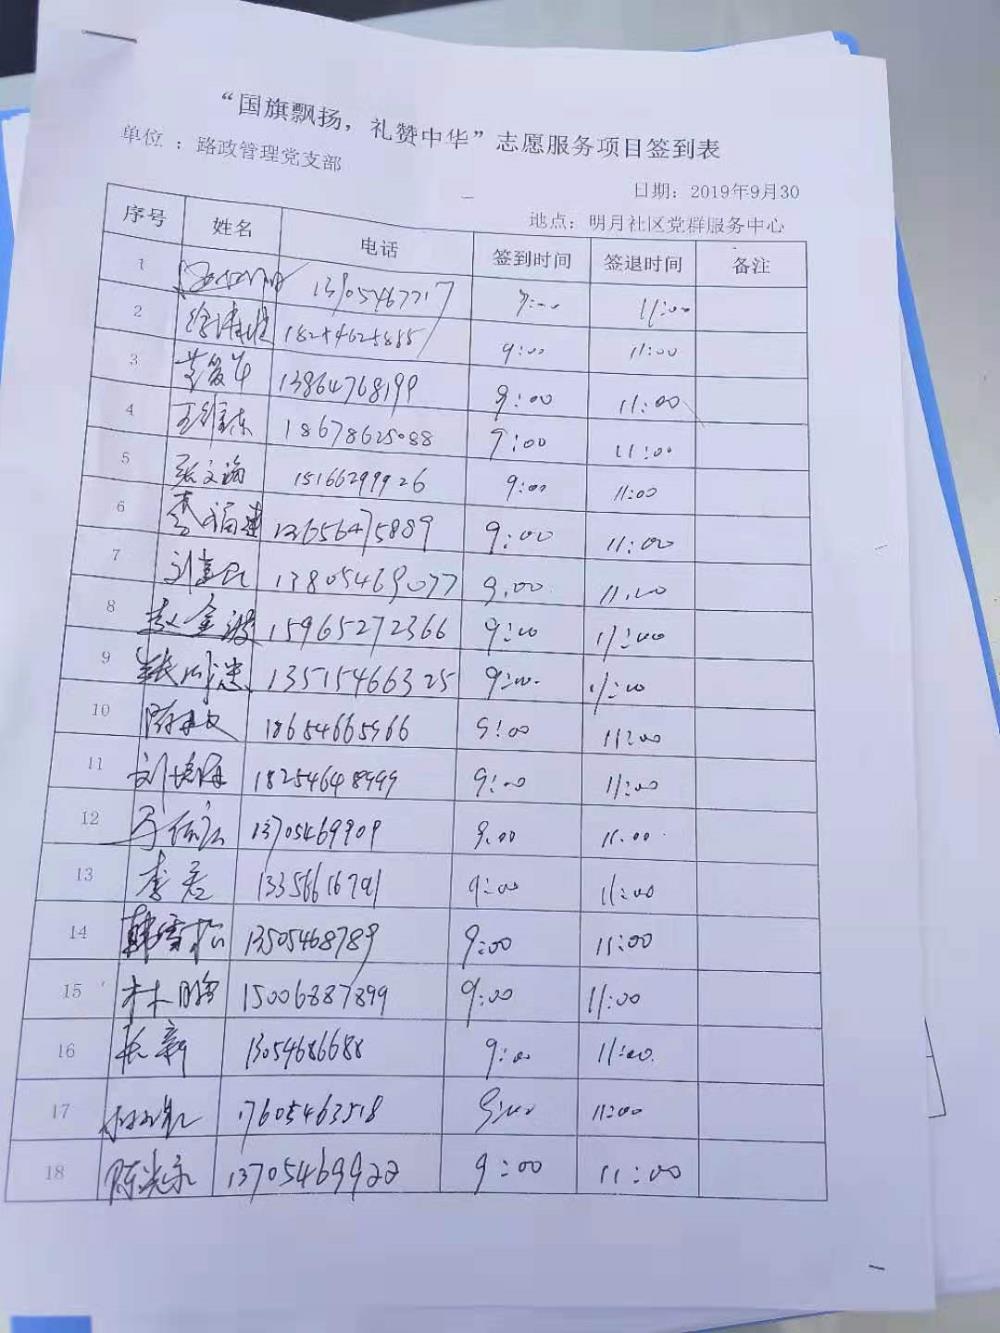 “国旗飘扬，礼赞中华”志愿服务项目签到表
单位 ：路政管理党支部
日期：2019年9月30
地点：明月社区党群服务中心
序号 姓名 电话 签到时间 签退时间 备注
1 13905467717 9:00 11:00
2 9:00 11:00
3 13864768199 9:00 11:00
4 18678625088 9:00 11:00
5 张文海 15166299926 9:00 11:00
6 李福建 13656475889 9:00 11:00
7 13805469077 9:00 11:00
8 赵金波 15965272366 9:00 11:00
9 13515466325 9:00 11:00
10 18654665966 9:00 11:00
11 18254648999 9:00 11:00
12 13705469909 9:00 11:00
13 李君 13356616791 9:00 11:00
14 韩雪松 13505468789 9:00 11:00
15 林鹏 15006887899 9:00 11:00
16 张新 13054686688 9:00 11:00
17 17605463518 9:00 11:00
18 陈光永 13705469922 9:00 11:00